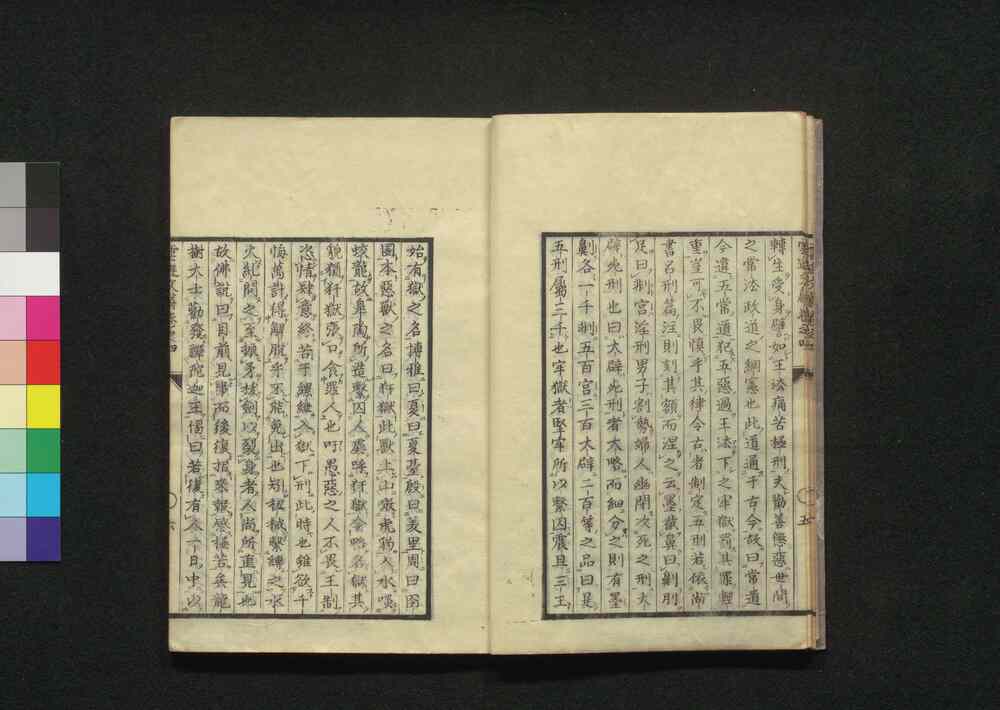 轉生受身譬如王法痛苦極刑夫勸善懲惡世間
之常法政道之綱憲也此道通于古今故曰常道
令違五常道犯五惡過王法下之牢獄罰其罪輕
重豈可不畏慎乎其律令古者制定五刑若依尚
書呂刑篇注則刻其額而涅之云墨截鼻曰劓刖
足曰剕宮淫刑男子割勢婦人幽閉次死之刑大
辟死刑也曰大辟死刑者大略而細分之則有墨
劓各一千剕五百宮三百大辟二百等之品曰是
五刑屬三千也牢獄者堅牢所以繫囚震旦三王
始有獄之名博雅曰夏曰夏臺殷曰羑里周曰囹
圄本惡獸之名曰犴獄此獸上山噉虎豹入水噉
蛟龍故皋陶所造繫囚人處喚犴獄會略名獄其
貌猶犴獄張口食罪人也吁愚惡之人不畏王制
恣情肆意終苦乎縲紲入獄下刑此時也雖欲千
悔萬計得解脫乎不能免出也
故佛說曰目前見事而後復報感極苦矣龍
樹大士勸發禪陀迦王偈曰若復有人一日中以